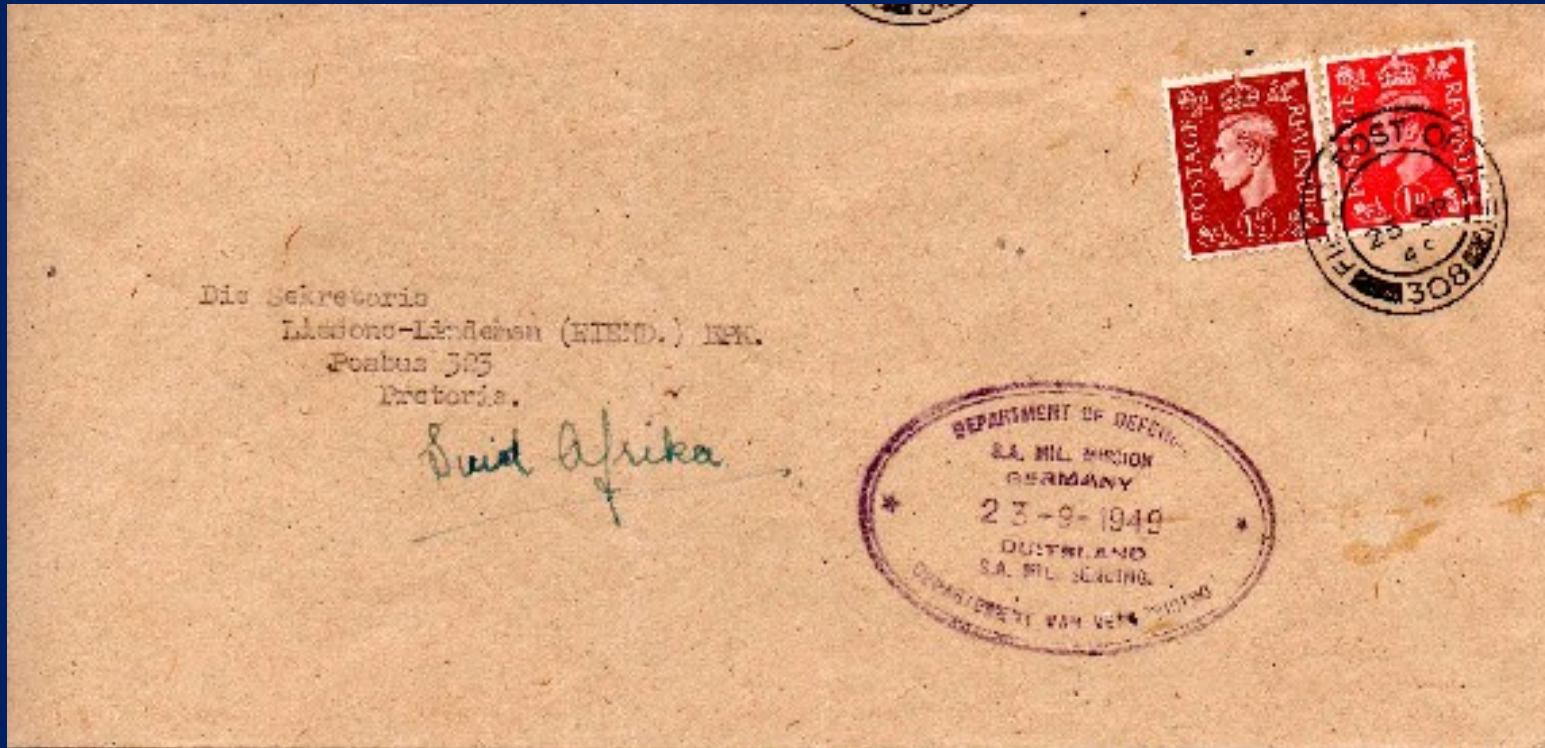 POSTAGE REVENUE
1½D
POSTAGE REVENUE
1D
FIELD POST OFFICE
25 SP
308
Die Sekretaris
(EIEND.) BPK.
Posbus 323
Pretoria.
Suid Afrika
DEPARTMENT OF DEFENCE
S.A. MIL. MISSION
GERMANY
23-9-1949
DUITSLAND
S.A. MIL. SENDING.
DEPARTEMENT VAN VERDEDIGING